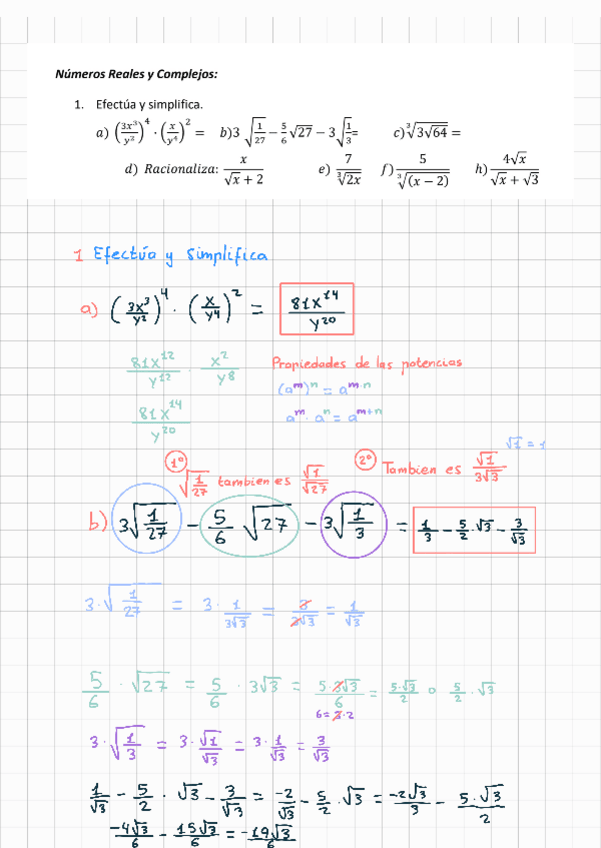 Números Reales y Complejos:
1. Efectúa y simplifica.
a) (3x³/y³)⁴ · (x/y⁴)² = b)3 √(1/27) − 5/6 √27 − 3 √(1/3)= c) ∛(3√64) =
d) Racionaliza: x/(√x + 2) e) 7/∛(2x) f) 5/∛((x − 2)) h) 4√x/(√x + √3)
1 Efectúa y simplifica
a) (3x³/y²)⁴ · (x/y⁴)² = 81x¹⁴/y²⁰
81x¹²/y¹² · x²/y⁸ Propiedades de las potencias
(aᵐ)ⁿ = aᵐ·ⁿ
81x¹⁴/y²⁰ aᵐ · aⁿ = aᵐ⁺ⁿ
√1 = 1
1º √(1/27) tambien es √1/√27 2º Tambien es √1/3√3
b) 3√(1/27) − 5/6 √27 − 3√(1/3) = 1/3 − 5/2 · √3 − 3/√3
3·√(1/27) = 3 · 1/3√3 = 3/3√3 = 1/√3
5/6 · √27 = 5/6 · 3√3 = 5·3√3/6 = 5·√3/2 o 5/2 · √3
6 = 3·2
3·√(1/3) = 3·√1/√3 = 3·1/√3 = 3/√3
1/√3 − 5/2 · √3 − 3/√3 = −2/√3 − 5/2 · √3 = −2√3/3 − 5·√3/2
−4√3/6 − 15√3/6 = −19√3/6